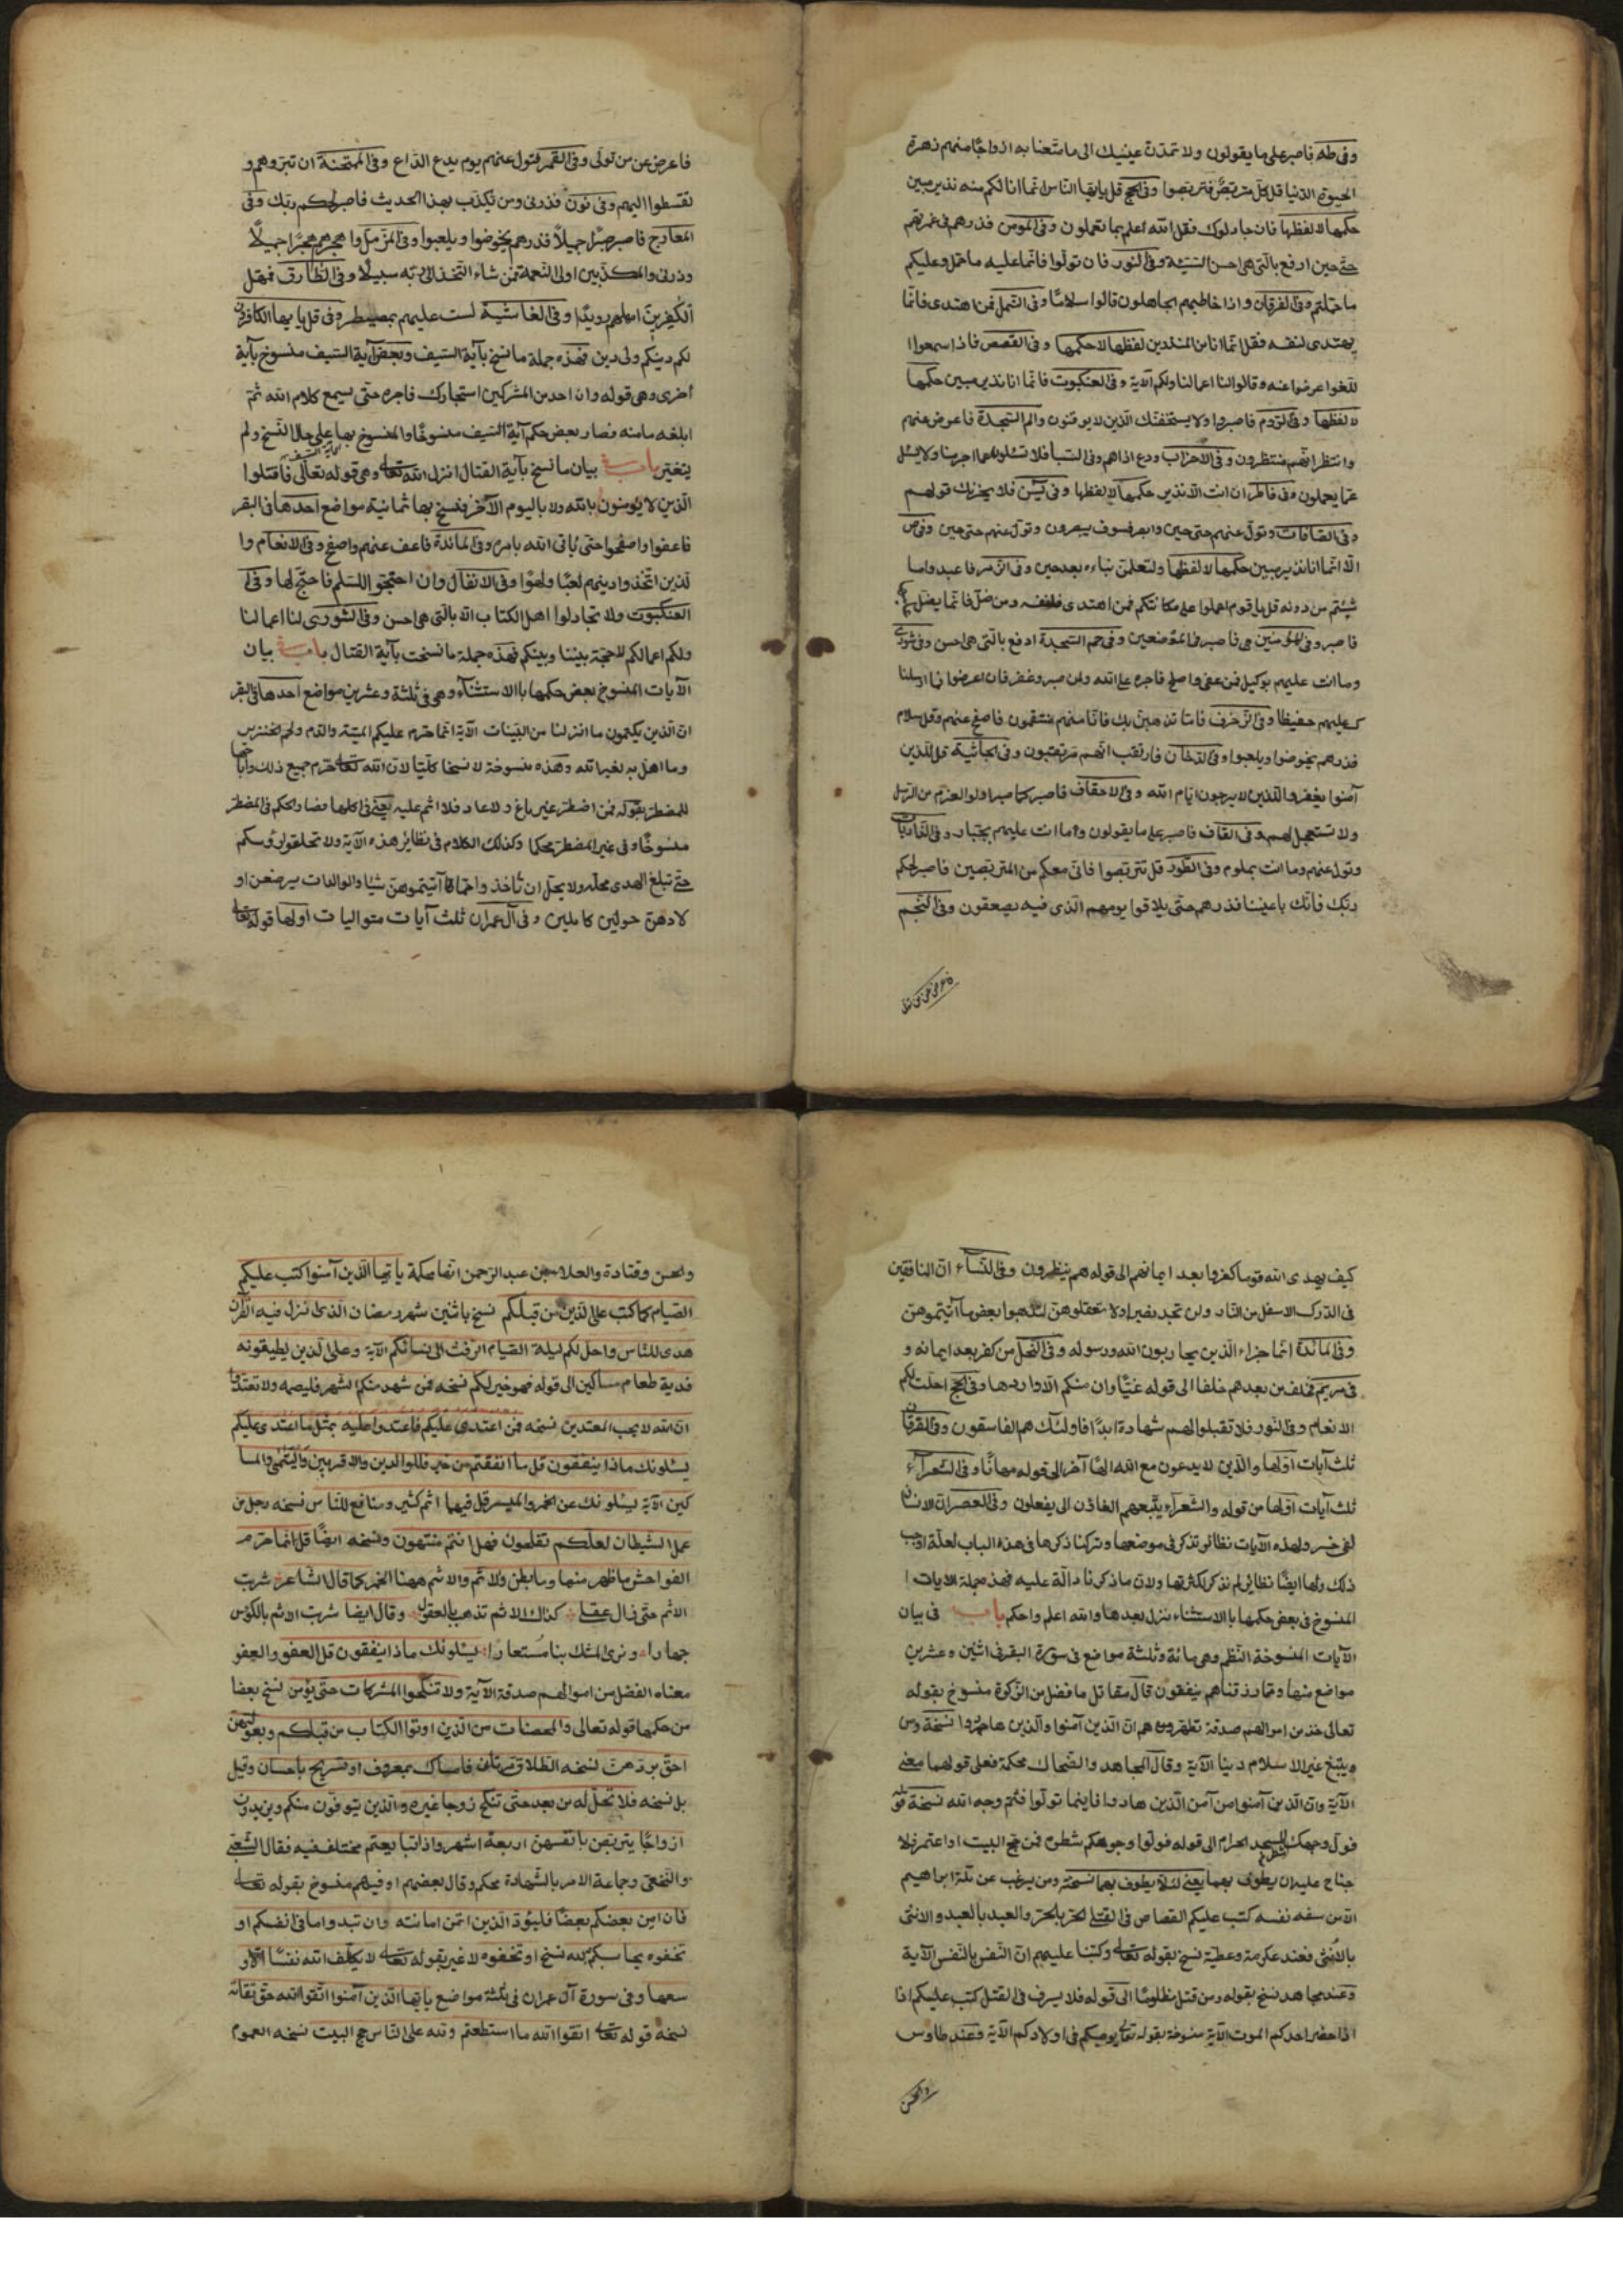 وفي طه فاصبر على ما يقولون ولا تمدن عينيك الى ما متعنا به ازواجا منهم زهرة
الحيوة الدنيا قل كل متربص فتربصوا وفي الحج قل يا يها الناس انما انا لكم منه نذير مبين
حكمها لا لفظها فان جادلوك فقل الله اعلم بما تعملون وفي المؤمن فذرهم في غمرتهم
حتى حين ادفع بالتي هي احسن السيئة وفي النور فان تولوا فانما عليه ما حمل وعليكم
ما حملتم وفي الفرقان واذا خاطبهم الجاهلون قالوا سلاما وفي النمل فمن اهتدى فانما
يهتدى لنفسه فقل انما انا من المنذرين لفظها لا حكمها وفي القصص فاذا سمعوا ا
للغوا عرضوا عنه وقالوا لنا اعمالنا ولكم الاية وفي العنكبوت فانما انا نذير مبين حكمها
لا لفظها وفي الروم فاصبروا ولا يستخفنك الذين لا يوقنون والم السجدة فاعرض عنهم
وانتظر انهم منتظرون وفي الاحزاب ودع اذاهم وفي السبأ فلا تسئلون عما اجرمنا ولا يسئل
عما يعملون وفي فاطر ان انت الا نذير حكمها لا لفظها وفي يس فلا يحزنك قولهم
وفي الصافات وتول عنهم حتى حين وابصر فسوف يبصرون وتول عنهم حتى حين وفي ص
الا انما انا نذير مبين حكمها لا لفظها ولتعلمن نباءه بعد حين وفي الزمر فاعبدوا ما
شئتم من دونه قل يا قوم اعملوا على مكانتكم فمن اهتدى فلنفسه ومن ضل فانما يضل
فاصبر وفي المؤمنين هي فاصبر في الموضعين وفي حم السجدة ادفع بالتي هي احسن وفي شورى
وما انت عليهم بوكيل فمن عفى واصلح فاجره على الله ولمن صبر وغفر فان اعرضوا فما ارسلنا
ك عليهم حفيظا وفي الزخرف فاما نذهبن بك فانا منهم منتقمون فاصفح عنهم وقل سلام
فذرهم يخوضوا ويلعبوا وفي الدخان فارتقب انهم مرتقبون وفي الجاثية قل للذين
آمنوا يغفروا للذين لا يرجون ايام الله وفي الاحقاف فاصبر كما صبر اولوا العزم من الرسل
ولا تستعجل لهم وفي القاف فاصبر على ما يقولون وما انت عليهم بجبار وفي الذاريات
وتول عنهم وما انت بملوم وفي الطور قل تربصوا فاني معكم من المتربصين فاصبر لحكم
ربك فانك باعيننا فذرهم حتى يلاقوا يومهم الذي فيه يصعقون وفي النجم
فاعرض عن من تولى
فاعرض عن من تولى وفي القمر فتول عنهم يوم يدع الداع وفي الممتحنة ان تبروهم و
تقسطوا اليهم وفي نون فذرني ومن يكذب بهذا الحديث فاصبر لحكم ربك وفي
المعارج فاصبر صبرا جميلا فذرهم يخوضوا ويلعبوا وفي المزمل واهجرهم هجرا جميلا
وذرني والمكذبين اولى النعمة فمن شاء اتخذ الى ربه سبيلا وفي الطارق فمهل
الكفرين امهلهم رويدا وفي الغاشية لست عليهم بمصيطر وفي قل يا يها الكافرون
لكم دينكم ولي دين فهذه جملة ما نسخ بآية السيف وبعض آية السيف منسوخ بآية
اخرى وهي قوله وان احد من المشركين استجارك فاجره حتى يسمع كلام الله ثم
ابلغه مامنه فصار بعض حكم آية السيف منسوخا والمنسوخ بها على حال النسخ ولم
يتغير باب بيان ما نسخ بآية القتال انزل الله تعالى آية السيف وهي قوله تعالى فاقتلوا
الذين لا يؤمنون بالله ولا باليوم الآخر فنسخ بها ثمانية مواضع احدها في البقر
فاعفوا واصفحوا حتى يأتى الله بامره وفي المائدة فاعف عنهم واصفح وفي الانعام وا
لذين اتخذوا دينهم لعبا ولهوا وفي الانفال وان اجنحوا للسلم فاجنح لها وفي ا
العنكبوت ولا تجادلوا اهل الكتاب الا بالتي هي احسن وفي الشورى لنا اعمالنا
ولكم اعمالكم لا حجة بيننا وبينكم فهذه جملة ما نسخت بآية القتال باب بيان
الآيات المنسوخ بعض حكمها باالاستثناء وهي في ثلثة وعشرين مواضع احدها في البقر
ان الذين يكتمون ما انزلنا من البينات الآية انما حرم عليكم الميتة والدم ولحم الخنزير
وما اهل به لغير الله وهذه منسوخة لا نسخا كليا لان الله تعالى حرم جميع ذلك واباحها
للمضطر بقوله فمن اضطر غير باغ ولا عاد فلا اثم عليه يعني في اكلها فصار الحكم في المضطر
منسوخا وفي غير المضطر محكما وكذلك الكلام في نظائر هذه الآية ولا تحلقوا رؤسكم
حتى تبلغ الهدى محله ولا يحل ان تأخذوا مما آتيتموهن شيئا والوالدات يرضعن او
لادهن حولين كاملين وفي آل عمران ثلث آيات متواليات اولها قوله تعالى
كيف يهدى الله قوما كفروا بعد ايمانهم الى قوله هم ينظرون وفي النساء ان المنافقين
في الدرك الاسفل من النار ولن تجد نصيرا ولا تعضلوهن لتذهبوا ببعض ما آتيتموهن
وفي المائدة انما جزاء الذين يحاربون الله ورسوله وفي النحل من كفر بعد ايمانه و
في مريم فخلف من بعدهم خلفا الى قوله غيا وان منكم الا واردها وفي الحج احلت لكم
الانعام وفي النور فلا تقبلوا لهم شهادة ابدا فاولئك هم الفاسقون وفي الفرقان
ثلث آيات اولها والذين لا يدعون مع الله الها آخر الى قوله مهانا وفي الشعراء
ثلث آيات اولها من قوله والشعراء يتبعهم الغاون الى يفعلون وفي العصر ان الانسان
لفي خسر ولهذه الآيات نظائر تذكر في موضعها وتركنا ذكرها في هذا الباب لعلة اوجب
ذلك ولها ايضا نظائر لم نذكر لكثرتها ولان ما ذكرنا دالة عليه فهذه جملة الايات ا
المنسوخ في بعض حكمها باالاستثناء نزل بعدها والله اعلم واحكم باب في بيان
الآيات المنسوخة النظم وهي مائة وثلثة مواضع في سورة البقر في اثنين وعشرين
مواضع منها ومما رزقناهم ينفقون قال مقاتل ما فضل من الزكوة منسوخ بقوله
تعالى خذ من اموالهم صدقة تطهرهم ان الذين آمنوا والذين هادوا نسخة ومن
يبتغ غير الاسلام دينا الآية وقال المجاهد والضحاك محكمة فعلى قولهما معنى
الآية وان الذين آمنوا من آمن الذين هادوا فاينما تولوا فثم وجه الله نسخة قوله
فول وجهك المسجد الحرام الى قوله فولوا وجوهكم شطره فمن حج البيت او اعتمر فلا
جناح عليه ان يطوف بهما يعني لئلا يطوف بهما نسخة ومن يرغب عن ملة ابراهيم
الا من سفه نفسه كتب عليكم القصاص في القتلى الحر بالحر والعبد بالعبد والانثى
بالانثى فعند عكرمة وعطية نسخ بقوله تعالى وكتبنا عليهم ان النفس بالنفس الآية
وعند مجاهد نسخ بقوله ومن قتل مظلوما الى قوله فلا يسرف في القتل كتب عليكم اذا
اذا حضر احدكم الموت الآية منسوخة بقوله تعالى يوصيكم في اولادكم الآية وعند طاوس
والحسن
والحسن وقتادة والعلاء بن عبد الرحمن انها محكمة يا يها الذين آمنوا كتب عليكم
الصيام كما كتب على الذين من قبلكم نسخ باثنين شهر رمضان الذي انزل فيه القرآن
هدى للناس واحل لكم ليلة الصيام الرفث الى نسائكم الآية وعلى الذين يطيقونه
فدية طعام مساكين الى قوله فهو خير لكم نسخه فمن شهد منكم الشهر فليصمه ولا تعتدوا
ان الله لا يحب المعتدين نسخه فمن اعتدى عليكم فاعتدوا عليه بمثل ما اعتدى عليكم
يسئلونك ماذا ينفقون قل ما انفقتم من خير فللوالدين والاقربين واليتمى والمسا
كين الآية يسئلونك عن الخمر والميسر قل فيهما اثم كثير ومنافع للناس نسخه رجس من
عمل الشيطان لعلكم تفلحون فهل انتم منتهون ونسخه ايضا قل انما حرم
الفواحش ما ظهر منها وما بطن والاثم والاثم ههنا الخمر كما قال الشاعر شربت
الاثم حتى ضال عقلي كذاك الاثم تذهب بالعقول وقال ايضا شربت الاثم بالكؤس
جهارا ونرى المتك بيننا مستعارا يسئلونك ماذا ينفقون قل العفو والعفو
معناه الفضل من اموالهم صدقة الآية ولا تنكحوا المشركات حتى يؤمن نسخ بعضا
من حكمها قوله تعالى والمحصنات من الذين اوتوا الكتاب من قبلكم وبعولتهن
احق بردهن نسخه الطلاق مرتان فامساك بمعروف او تسريح باحسان وقيل
بل نسخه فلا تحل له من بعد حتى تنكح زوجا غيره والذين يتوفون منكم ويذرون
ازواجا يتربصن بانفسهن اربعة اشهر واذا تبايعتم مختلف فيه فقال الشعبي
والنخعي وجماعة الامر بالشهادة محكم وقال بعضهم او فيهم منسوخ بقوله تعالى
فان امن بعضكم بعضا فليؤد الذين اتمن امانته وان تبدوا ما في انفسكم او
تخفوه يحاسبكم به الله نسخ او تخفوه لا غير بقوله تعالى لا يكلف الله نفسا الا و
سعها وفي سورة آل عمران في ثلثة مواضع يا يها الذين آمنوا اتقوا الله حق تقاته
نسخه قوله تعالى اتقوا الله ما استطعتم ولله على الناس حج البيت نسخه العموم